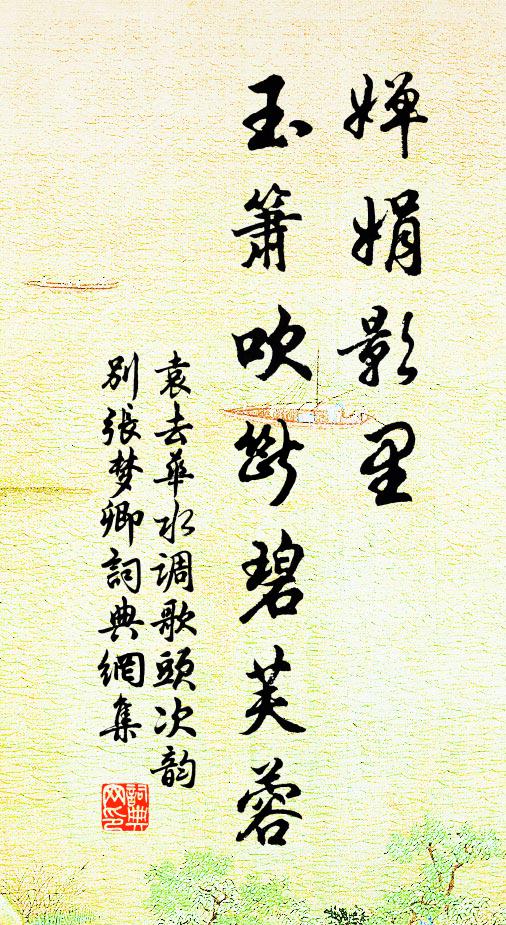 婵娟影里
玉箫吹断碧芙蓉
袁去華水调歌頭次韵
别張梦卿詞典網集
詞典网印